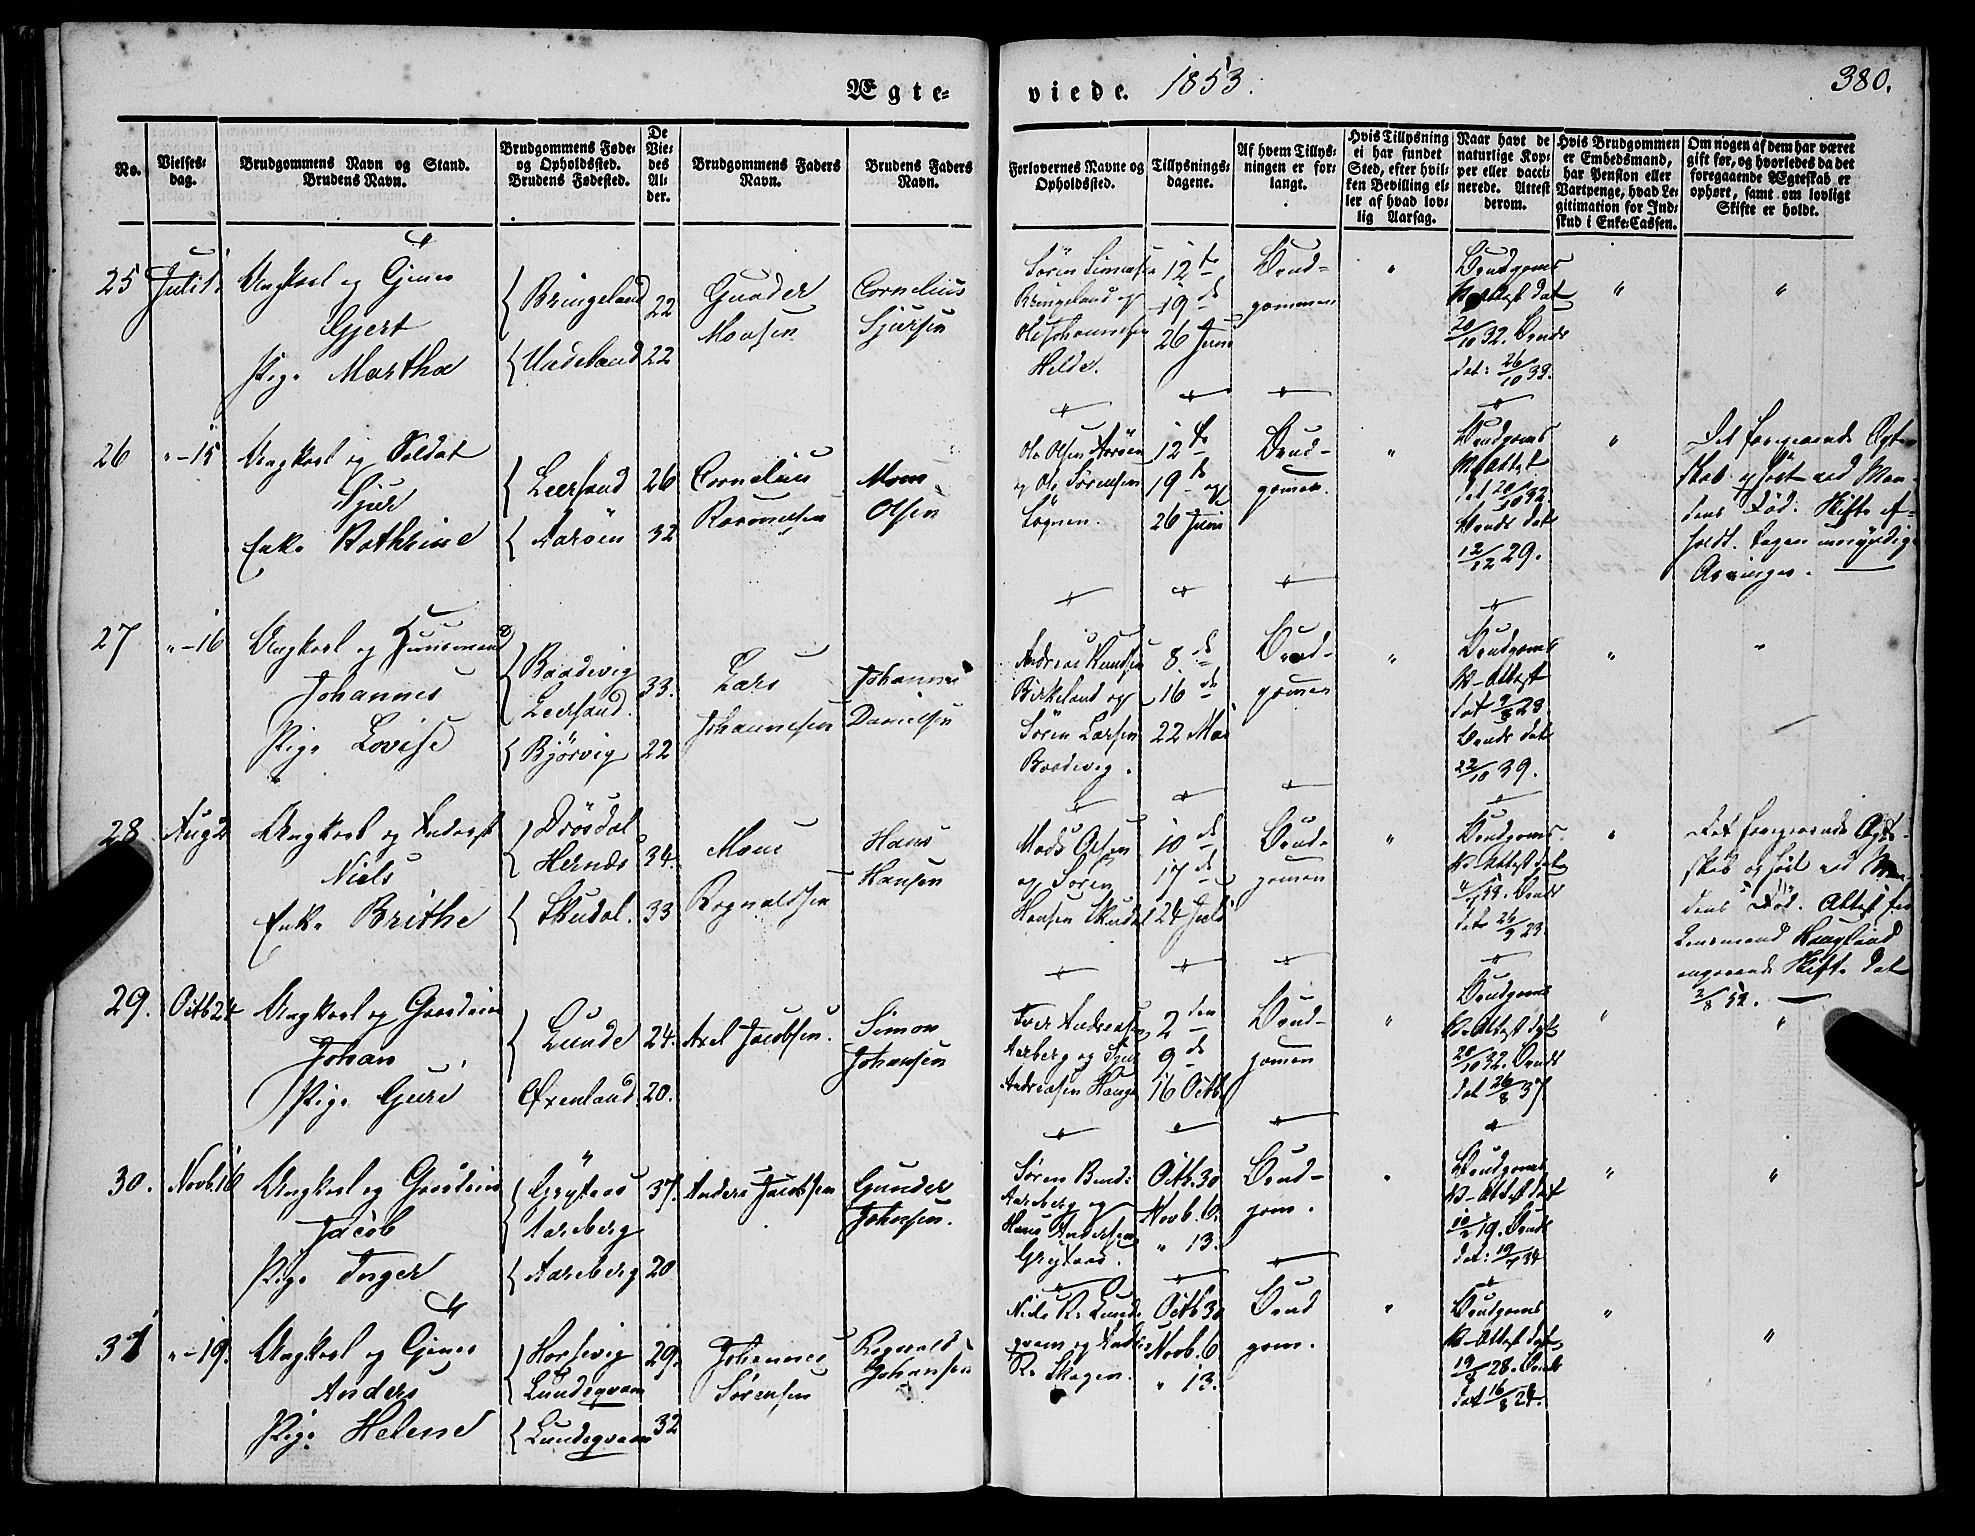 Ægte-
viede. 1853.
380.
No.
Vielses-
dag.
Brudgommens Navn og Stand.
Brudens Navn.
Brudgommens Føde-
og Opholdssted.
Brudens Fødested.
De
Vie-
des
Al-
der.
Brudgommens Faders
Navn.
Brudens Faders
Navn.
Forlovernes Navne og
Opholdssted.
Tillysnings-
dagene.
Af hvem Tillys-
ningen er for-
langt.
Hvis Tillysning
ei har fundet
Sted, efter hvil-
ken Bevilling el-
ler af hvad lov-
lig Aarsag.
Naar havt de
naturlige Kop-
per eller vacci-
nerede. Attest
derom.
Hvis Brudgommen
er Embedsmand,
har Pension eller
Vartpenge, hvad Le-
gitimation for Ind-
skud i Enke-Cassen.
Om nogen af dem har været
gift før, og hvorledes da det
foregaaende Ægteskab er
ophørt, samt om lovligt
Skifte er holdt.
25 Juli 1. Ungkarl og
Gjert
Pige Martha
Bringeland 22
Udeland 22
Gunder
Monsen
Cornelius
Sjursen
Søren Simensen
Bringeland og
Ole Johannesen
Helde.
12te
19de
26 Juni
Brud-
gommen
"
Brudgoms
V. Attest dat
20/10 32. Bruds
dat: 26/10 33.
"
"
26 " - 15 Ungkarl og Soldat
Sjur
Enke Kathrine
Leersund 26
Aarøen 32
Cornelius
Rasmussen
Mons
Olsen
Ole Olsen Aarøen
og Ole Sørensen
Sognen.
12te
19de og
26 Juni
Brud-
gomen.
"
Brudgoms
V. Attest
dat 20/10 32
Bruds dat
12/12 29.
"
Det foregaaende Ægte-
skab ophørt ved Man-
dens Død. Skifte af-
holdt. Ingen umyndige
Arvinger.
27 " - 16 Ungkarl og Huusmand
Johannes
Pige Lovise
Baadevig
Leersund. 33.
Bjørvig 22
Lars
Johannesen
Johannes
Danielsen
Andreas Knudsen
Birkeland og
Søren Larsen
Baadevig.
8de
16de
22 Mai
Brud-
gomen
"
Brudgoms
V-Attest
Bruds dat
22/10 39.
"
"
28 Aug 2 Ungkarl og
Niels
Enke Brithe
Drøsdal
Hernæs 34.
Skudal. 33
Mons
Rognaldsen
Hans
Hansen
Mads Olsen
og Søren
Hansen Skudal
10de
17de
24 Juli
Brud-
gomen
"
Brudgoms
V-Attest dat
dat 26/9 23.
"
Det foregaaende Ægte-
skab ophørt ved Man-
dens Død. Attest fra
Lensmand Haugland
angaaende Skifte dat
29. Octb 24 Ungkarl og Gaardmand
Johan
Pige Guri
Lunde 24.
Øxenland. 20.
Axel Jacobsen.
Simon
Johansen
Iver Andreasen
Aarberg og Sjur
Andreasen Hauge
2den
9de
16 Octb.
Brud-
gomen
"
Brudgoms
V-Attest dat
20/10 32. Bruds
dat 26/8 37.
"
"
30. Novb. 16 Ungkarl og Gaardmand
Jacob
Pige Inger
Grytaas 37.
Aareberg
Aareberg 20
Anders Jacobsen
Gunder
Johnsen.
Søren Bend:
Aareberg og
Hans Andersen
Grytaas.
Octb. 30
Novb. 6.
" 13.
Brud-
gom.
"
Brudgoms
V-Attest dat
"
"
31 " - 19. Ungkarl og
Anders
Pige Helene
Horsevig 29.
Lundeqvam
Lundeqvam 32
Johannes
Sørensen
Rognald
Johansen
Niels R. Lunde-
qvam og
R. Skagen.
Octb 30
Novb. 6
" 13.
Brud
gom.
"
Brudgoms
V-Attest dat
19/8 28. Bruds
dat 16/8 24.
"
"